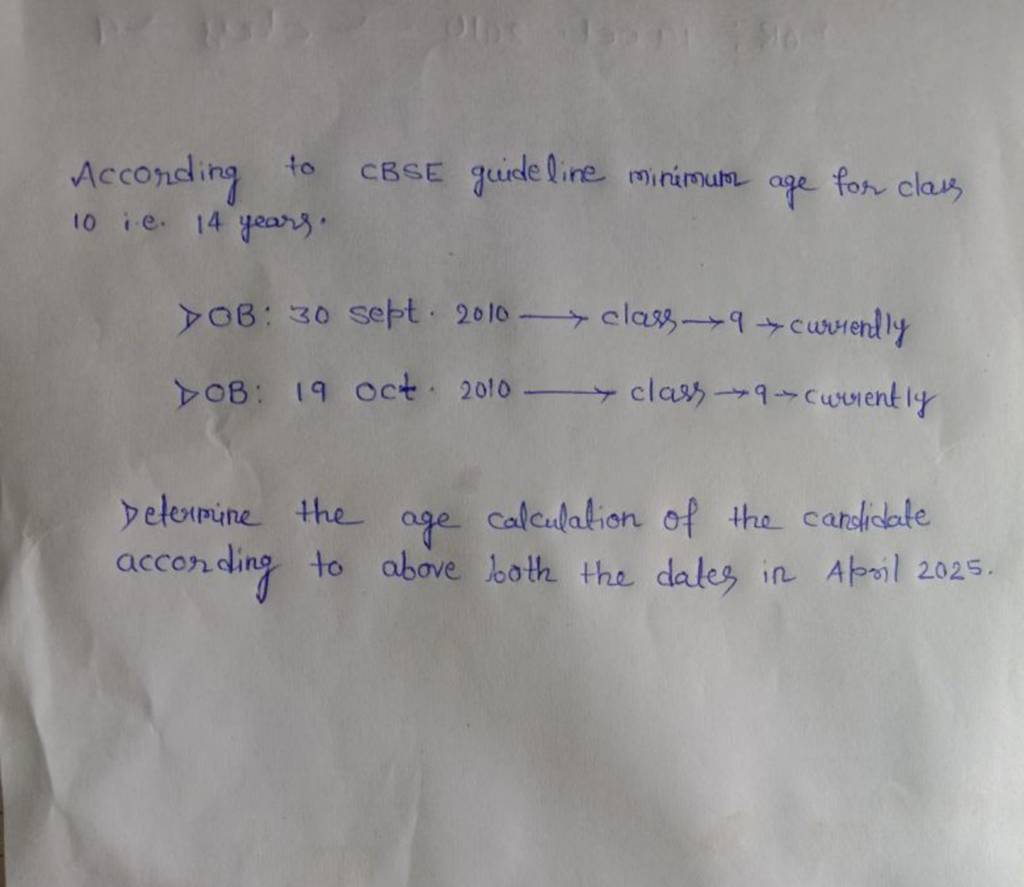 According to CBSE guideline minimum age for class
10 i.e. 14 years.
DOB: 30 sept. 2010 → class → 9 → currently
DOB: 19 oct. 2010 → class → 9 → currently
Determine the age calculation of the candidate
according to above both the dates in April 2025.